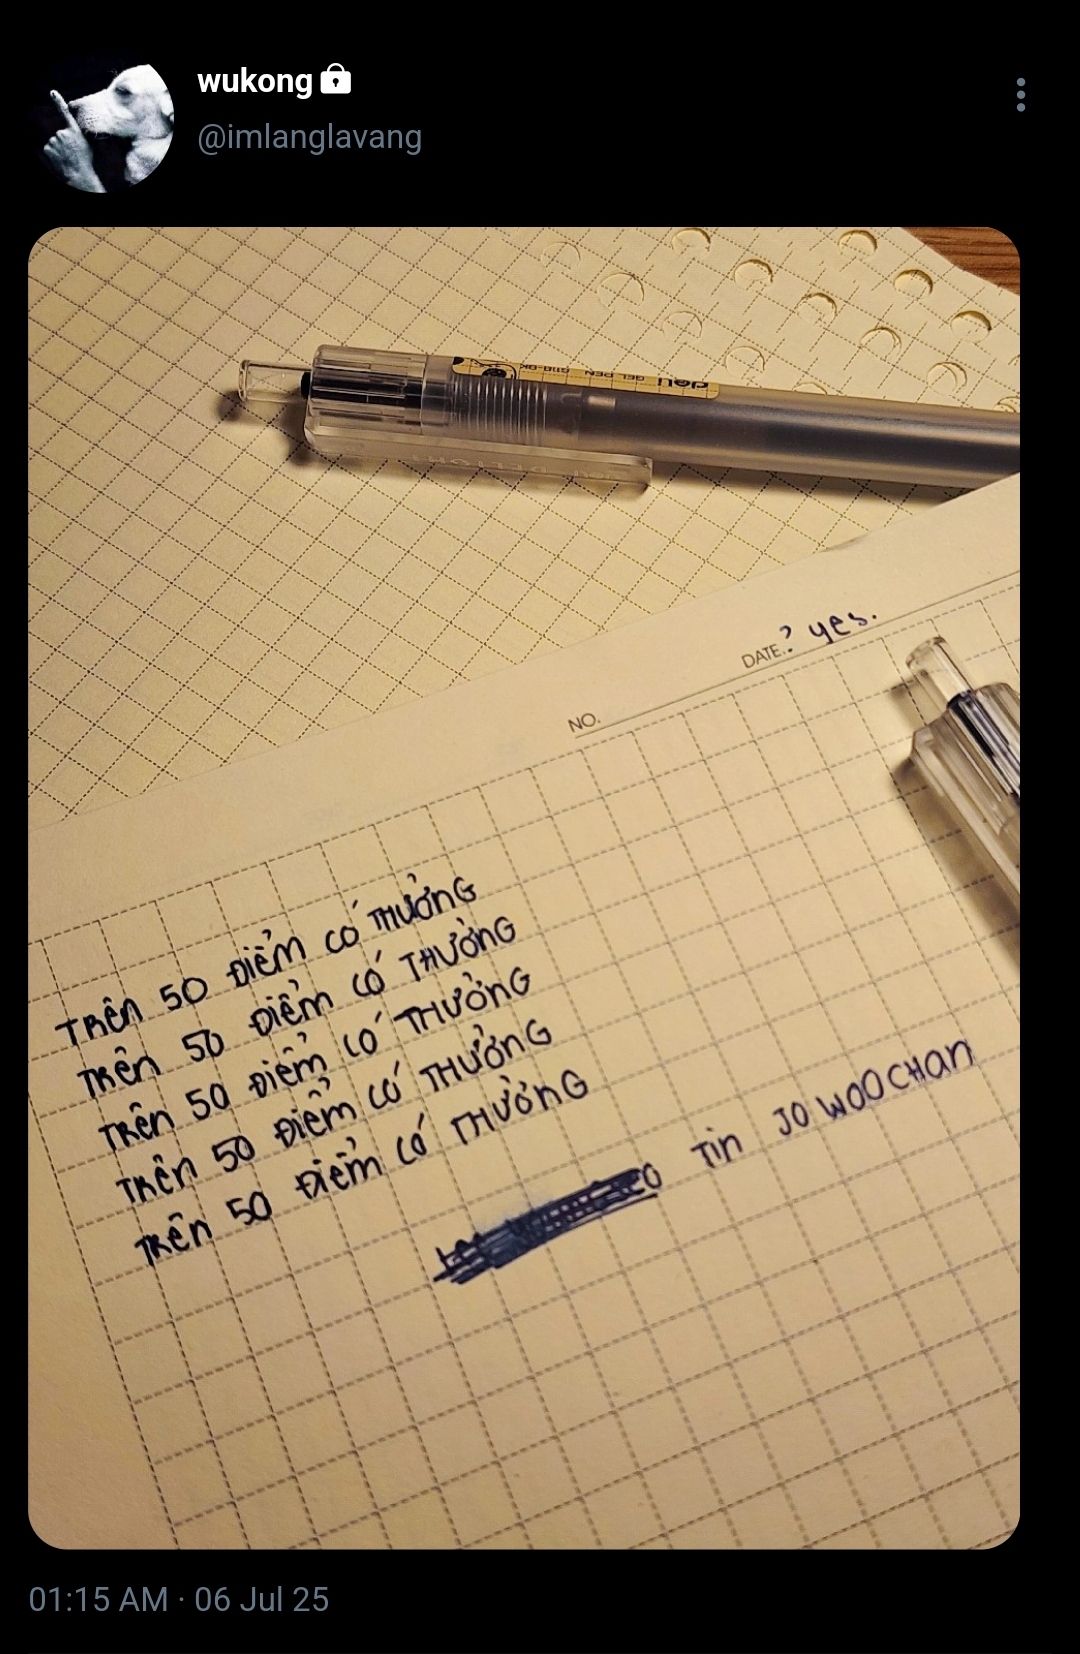 wukong
@imlanglavang
deli GEL PEN
DATE.? yes.
NO.
TRÊN 50 ĐIỂM CÓ THƯỞNG
TRÊN 50 ĐIỂM CÓ THƯỞNG
TRÊN 50 ĐIỂM CÓ THƯỞNG
TRÊN 50 ĐIỂM CÓ THƯỞNG
TRÊN 50 ĐIỂM CÓ THƯỞNG
TIN JO WOOCHAN
01:15 AM · 06 Jul 25